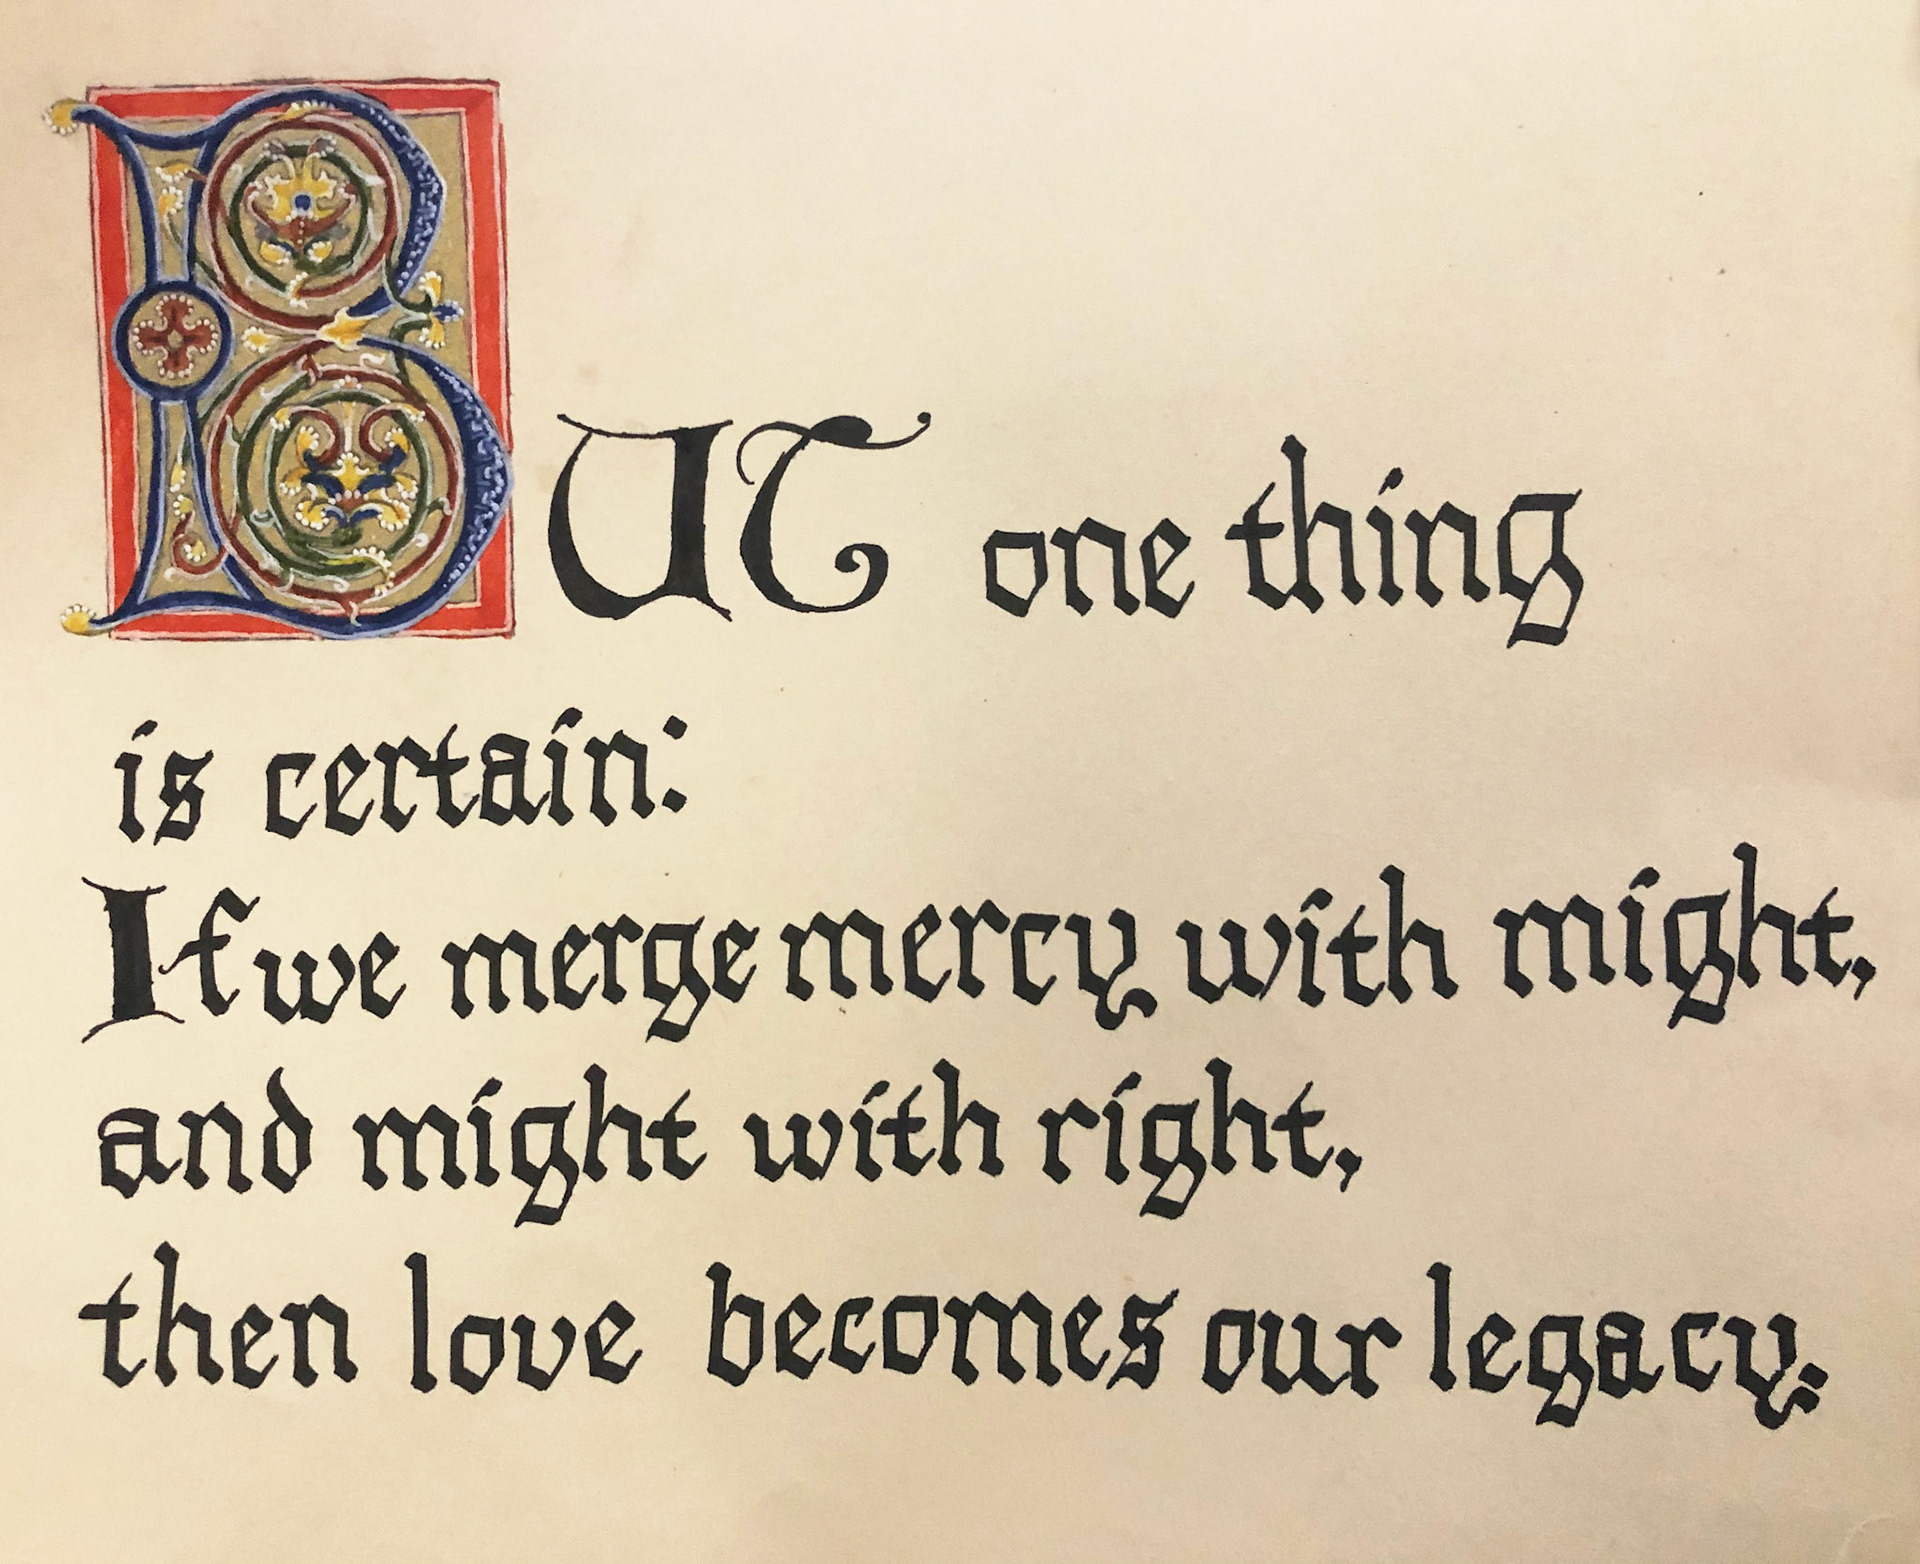 BUT one thing
is certain:
If we merge mercy with might,
and might with right,
then love becomes our legacy.